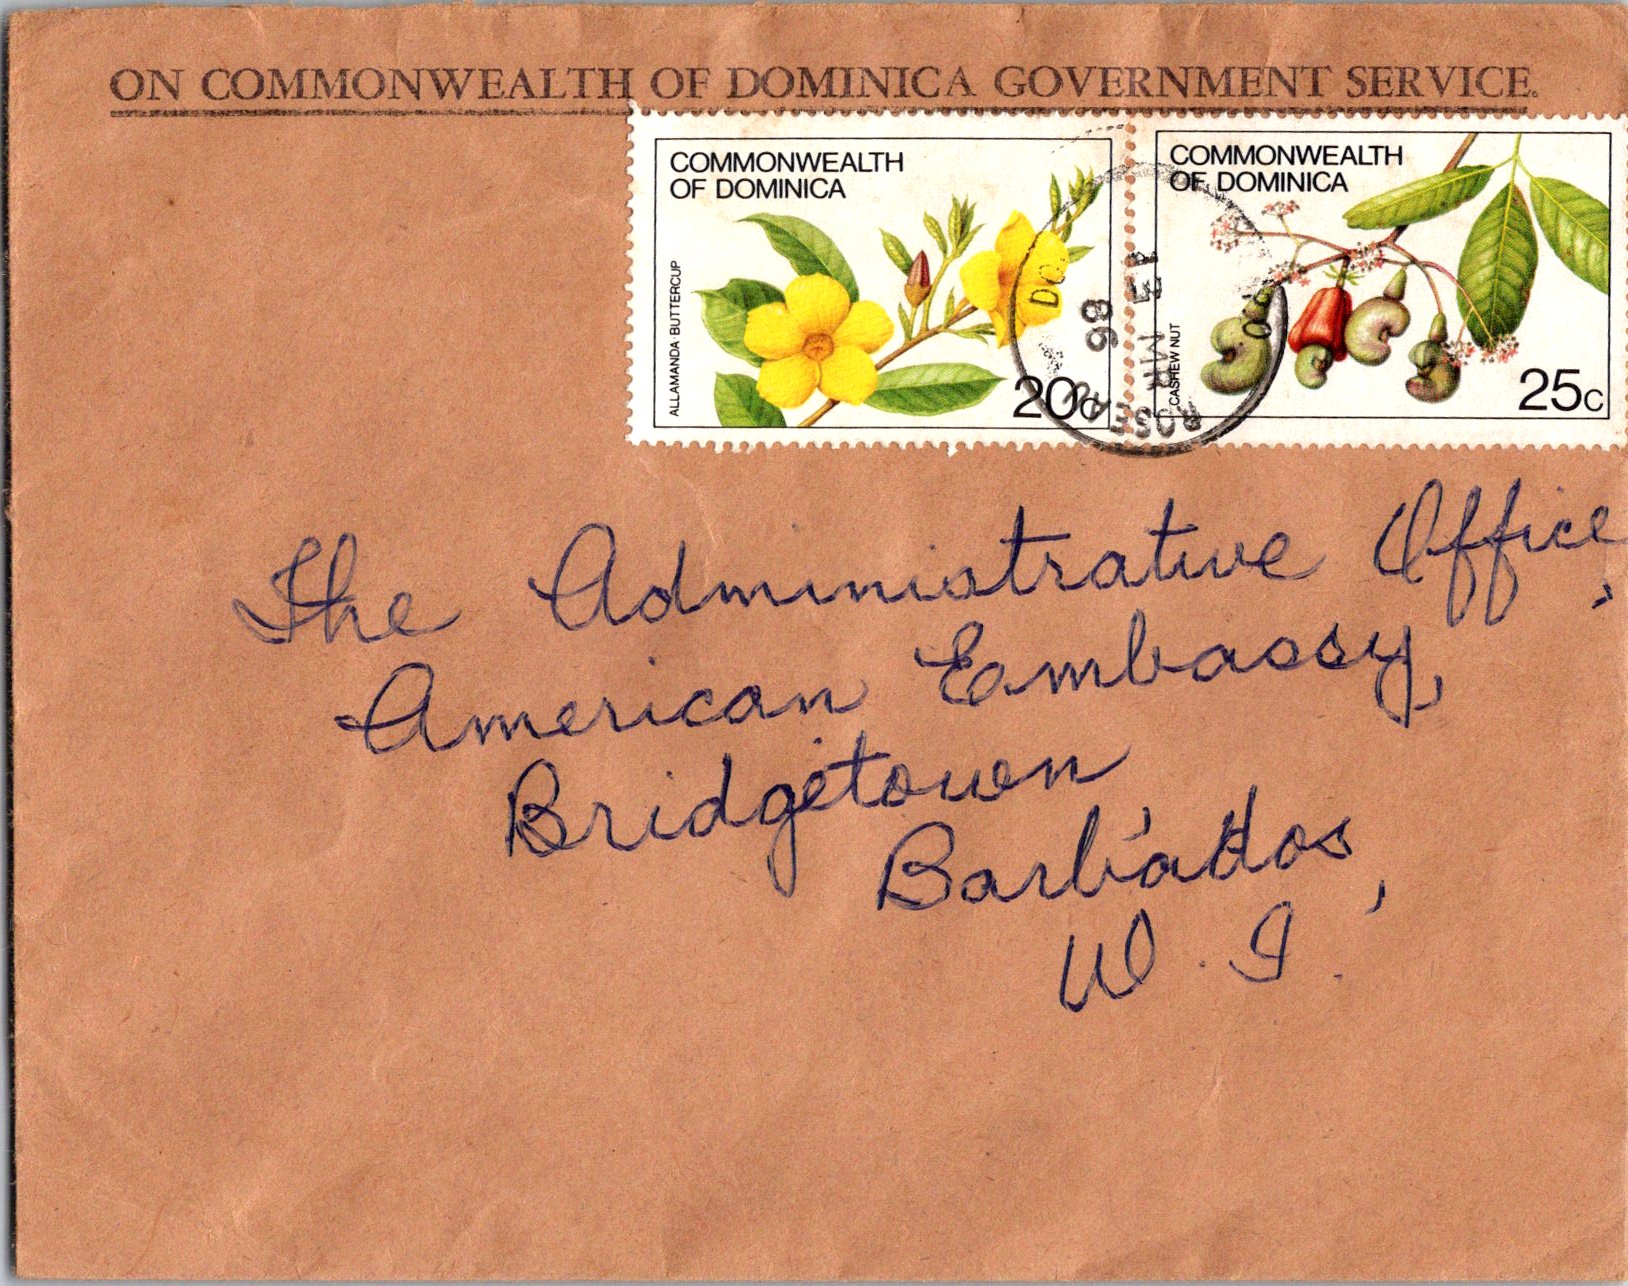 ON COMMONWEALTH OF DOMINICA GOVERNMENT SERVICE.
COMMONWEALTH
OF DOMINICA
ALLAMANDA·BUTTERCUP
20c
COMMONWEALTH
OF DOMINICA
CASHEW NUT
25c
ROSEAU
MR
The Administrative Office,
American Embassy,
Bridgetown
Barbados,
W.I.